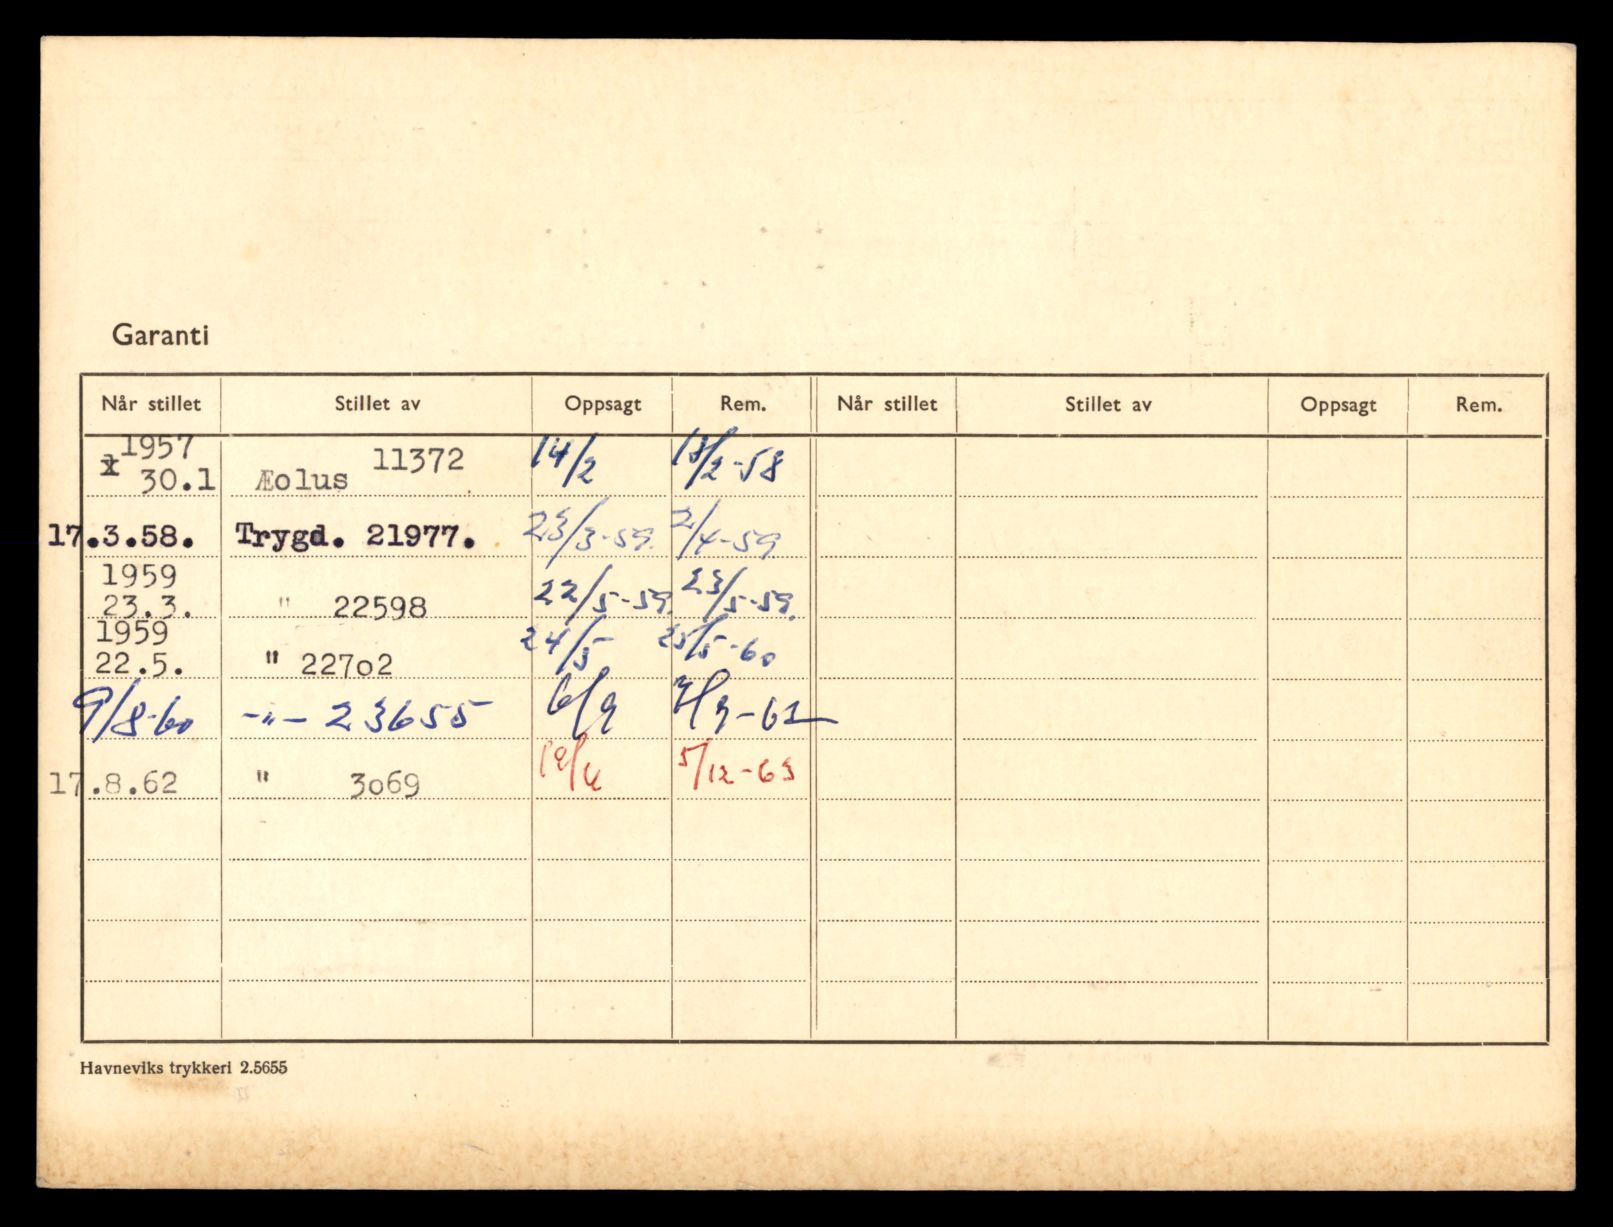 Garanti
Når stillet Stillet av Oppsagt Rem. Når stillet Stillet av Oppsagt Rem.
1957
30.1 Æolus 11372 14/2 18/2-58
17.3.58. Trygd. 21977. 23/3-59. 2/4-59
1959
23.3. " 22598 22/5-59. 23/5-59.
1959
22.5. " 22702 24/5 25/5-60
9/8-60 -"- 23655 6/9
17.8.62 " 3069 5/12-63
Havneviks trykkeri 2.5655